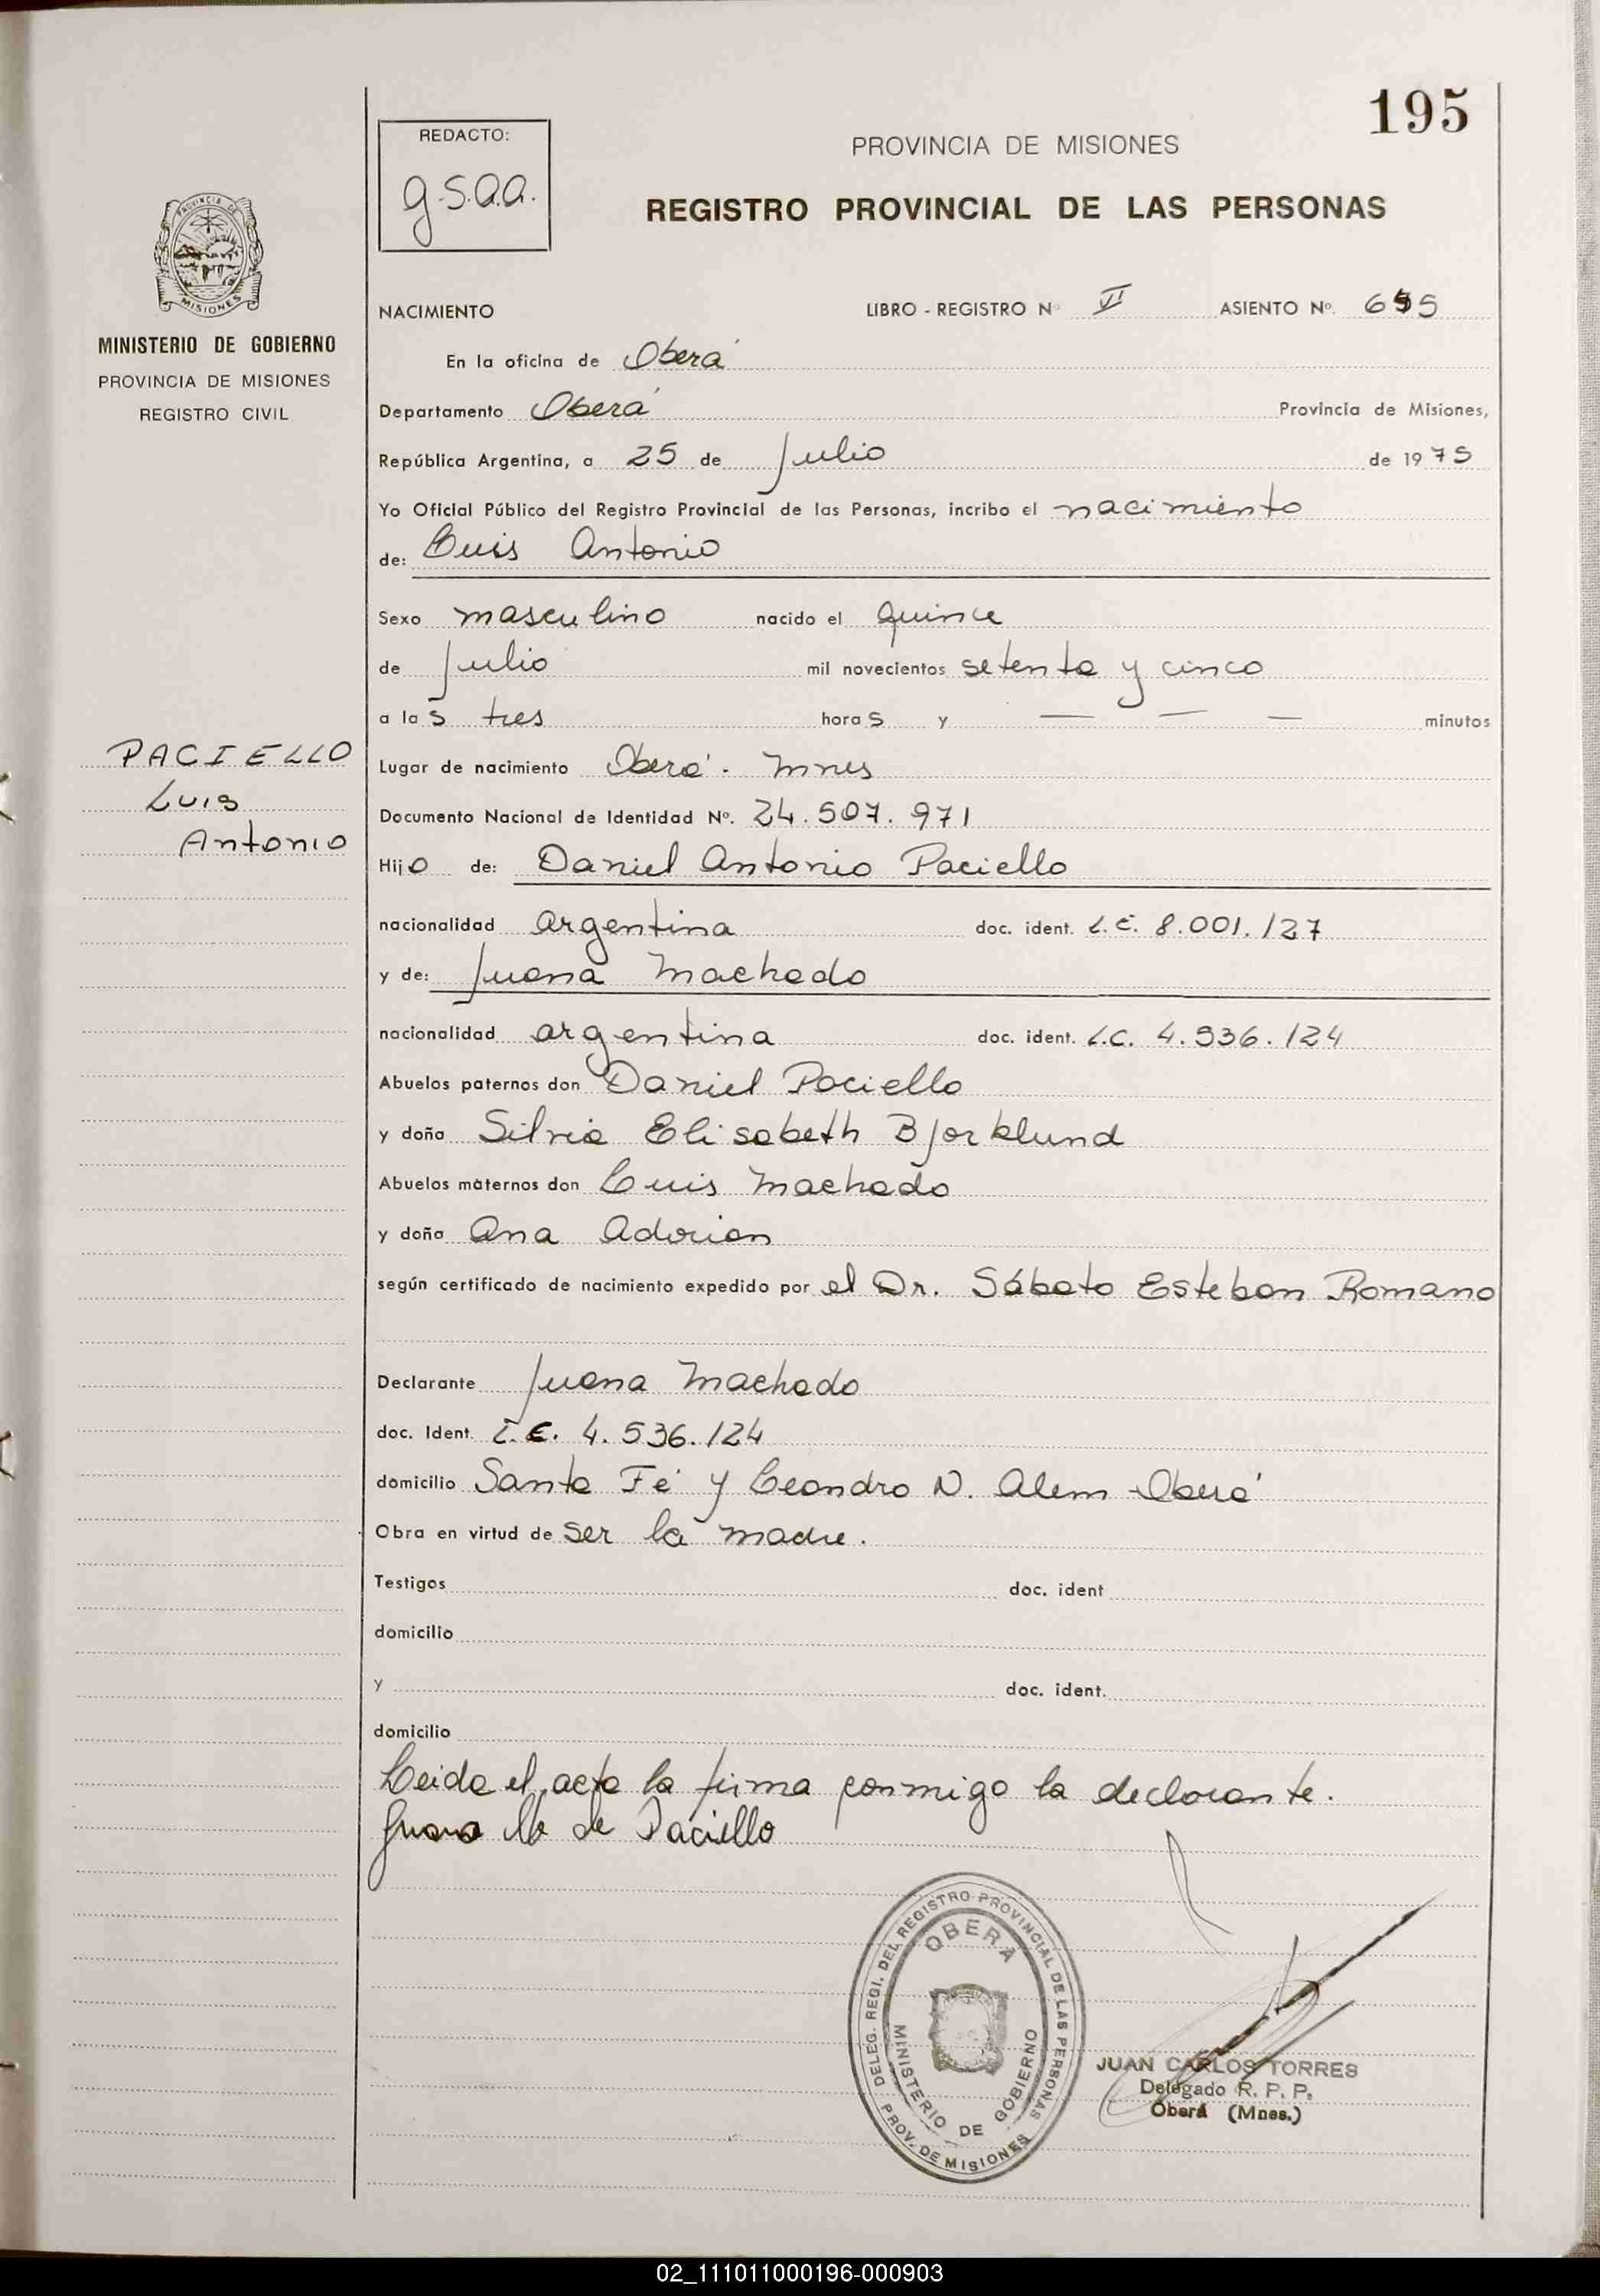 195
REDACTO:
g.S.a.a.
PROVINCIA DE MISIONES
REGISTRO PROVINCIAL DE LAS PERSONAS
PROVINCIA DE
MISIONES
MINISTERIO DE GOBIERNO
PROVINCIA DE MISIONES
REGISTRO CIVIL
NACIMIENTO LIBRO - REGISTRO Nº VI ASIENTO Nº.
En la oficina de Oberá
Departamento Oberá Provincia de Misiones,
República Argentina, a 25 de Julio de 1975
Yo Oficial Público del Registro Provincial de las Personas, incribo el nacimiento
de: Luis Antonio
Sexo masculino nacido el quince
de Julio mil novecientos setenta y cinco
a las tres horas y — — — minutos
PACIELLO
Luis
Antonio
Lugar de nacimiento Oberá. Mnes
Documento Nacional de Identidad Nº. 24.507.971
Hijo de: Daniel Antonio Paciello
nacionalidad argentina doc. ident. L.E. 8.001.127
y de: Juana Machado
nacionalidad argentina doc. ident. L.C. 4.936.124
Abuelos paternos don Daniel Paciello
y doña Silvia Elisabeth Bjorklund
Abuelos maternos don Luis Machado
y doña Ana Adorian
según certificado de nacimiento expedido por el Dr. Sábato Esteban Romano
Declarante Juana Machado
doc. Ident. 4.536.124
domicilio Santa Fé y Leandro N. Alem - Oberá
Obra en virtud de ser la madre.
Testigos doc. ident
domicilio
y doc. ident.
domicilio
Leida el acta la firma conmigo la declarante.
Juana M de Paciello
DELEG. REGI. DEL REGISTRO PROVINCIAL DE LAS PERSONAS
OBERA
MINISTERIO DE GOBIERNO
PROV. DE MISIONES
JUAN CARLOS TORRES
Delegado R. P. P.
Oberá (Mnes.)
02_111011000196-000903